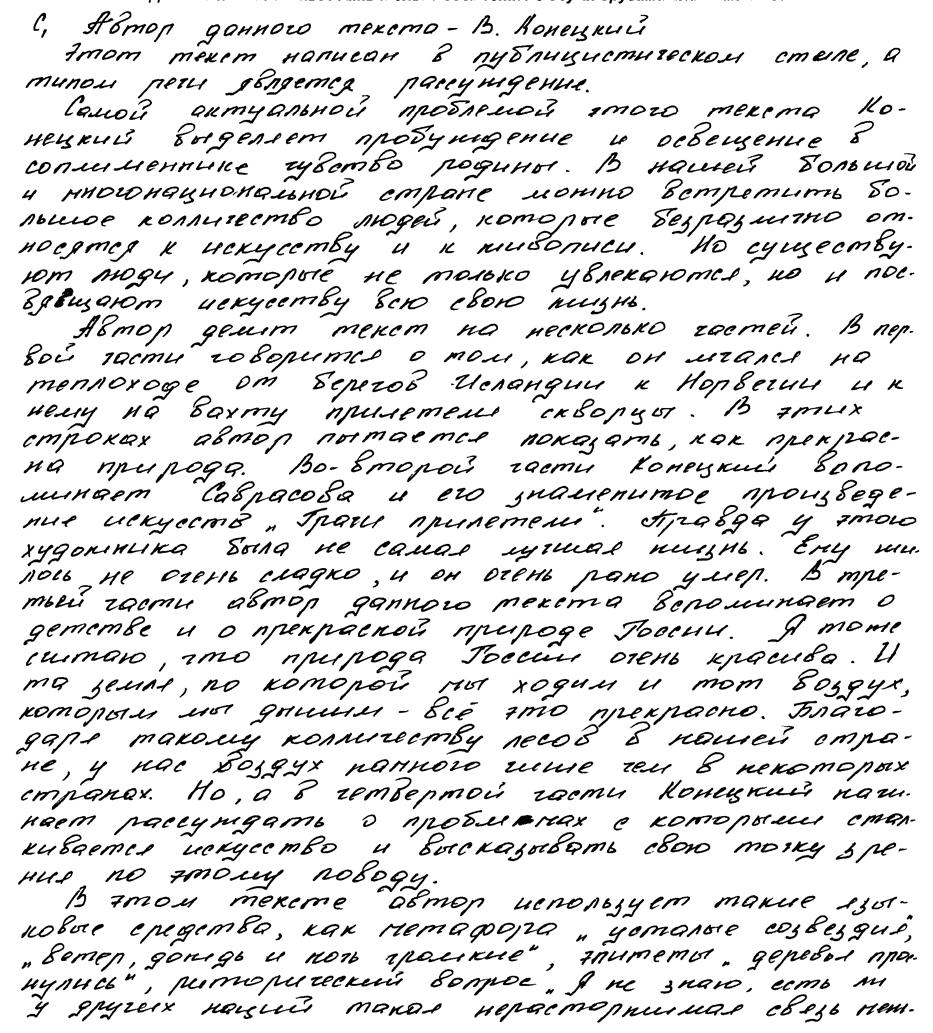 С1 Автор данного текста - В. Конецкий
Этот текст написан в публицистическом стиле, а
типом речи является рассуждение.
Самой актуальной проблемой этого текста Ко-
нецкий выделяет пробуждение и освещение в
соплименнике чувство родины. В нашей большой
и многонациональной стране можно встретить бо-
льшое колличество людей, которые безразлично от-
носятся к искусству и к живописи. Но существу-
ют люди, которые не только увлекаются, но и пос-
вящают искусству всю свою жизнь.
Автор делит текст на несколько частей. В пер-
вой части говорится о том, как он мчался на
теплоходе от берегов Исландии к Норвегии и к
нему на вахту прилетели скворцы. В этих
строках автор пытается показать, как прекрас-
на природа. Во-второй части Конецкий вспо-
минает Саврасова и его знаменитое произведе-
ние искусств „Грачи прилетели“. Правда у этого
художника была не самая лучшая жизнь. Ему жи-
лось не очень сладко, и он очень рано умер. В тре-
тьей части автор данного текста вспоминает о
детстве и о прекрасной природе России. Я тоже
считаю, что природа России очень красива. И
та земля, по которой мы ходим и тот воздух,
которым мы дышим - всё это прекрасно. Благо-
даря такому колличеству лесов в нашей стра-
не, у нас воздух намного чище чем в некоторых
странах. Но, а в четвертой части Конецкий начи-
нает рассуждать о проблемах с которыми стал-
кивается искусство и высказывать свою точку зре-
ния по этому поводу.
В этом тексте автор использует такие язы-
ковые средства, как метафора „усталые созвездия“,
„ветер, дождь и ночь громкие“, эпитеты „деревья про-
нулись“, риторический вопрос „Я не знаю, есть ли
у других наций такая нерасторжимая связь меж-